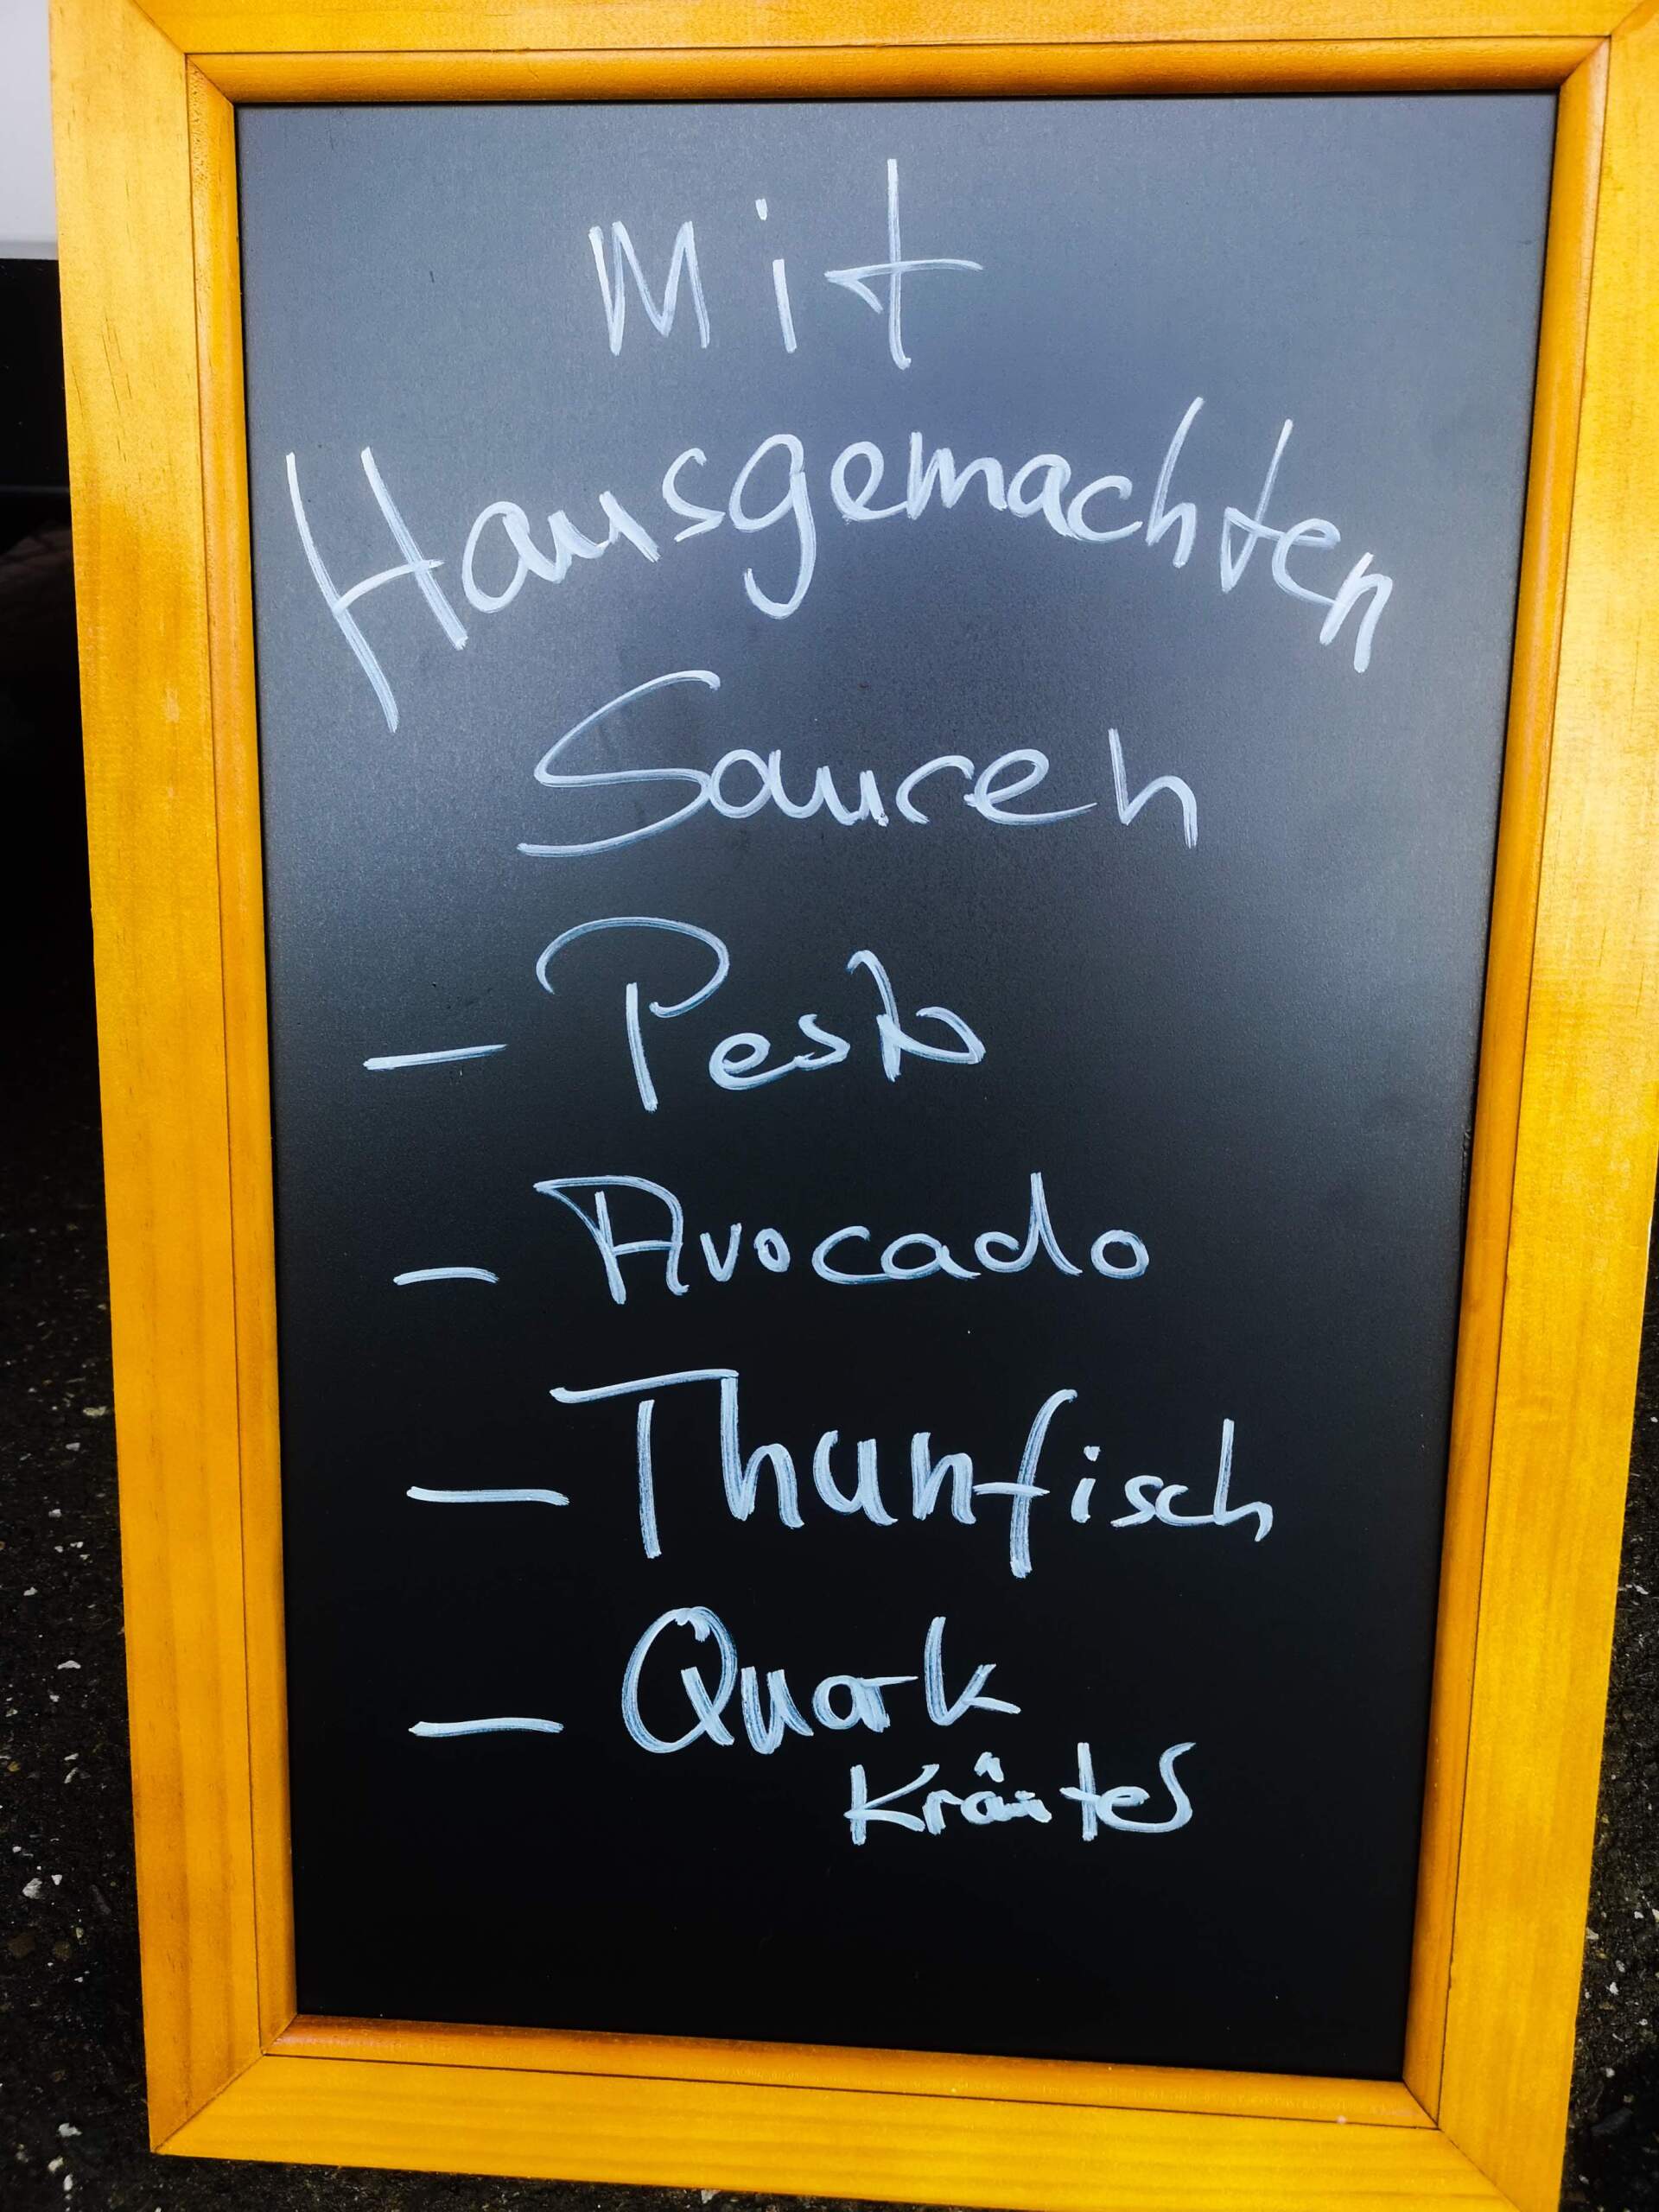 Mit
Hausgemachten
Saucen
- Pesto
- Avocado
- Thunfisch
- Quark
Kräuter